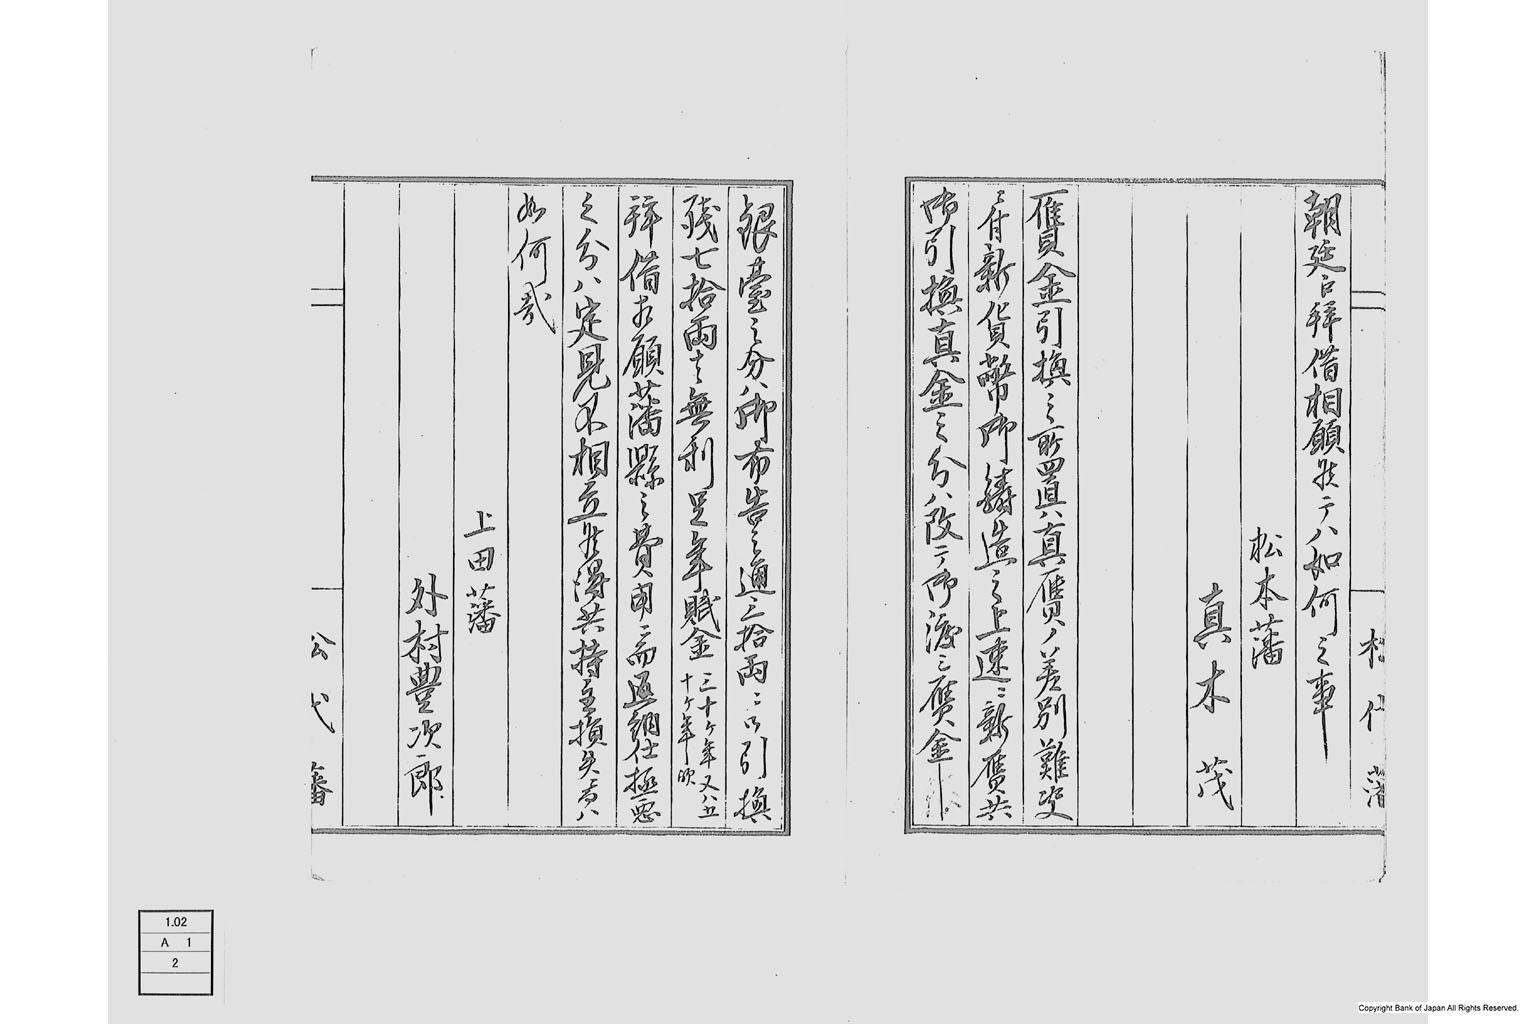 松代藩
朝廷ゟ拝借相願候テハ如何之事
松本藩
真木茂
贋金引換之所置ハ真贋ノ差別難定
ニ付新貨幣御鋳造之上速ニ新贋共
御引換真金之分ハ改テ御渡シ贋金
銀臺之分ハ御布告之通三拾両ニ御引換
残七拾両ハ無利足年賦金三十ケ年又ハ五
十ケ年
拝借相願藩縣之費用ニ而返納仕極悪
之分ハ定見不相立候得共持主損失
如何哉
上田藩
外村豊次郎
松代藩
1.02
A 1
2
Copyright Bank of Japan All Rights Reserved.